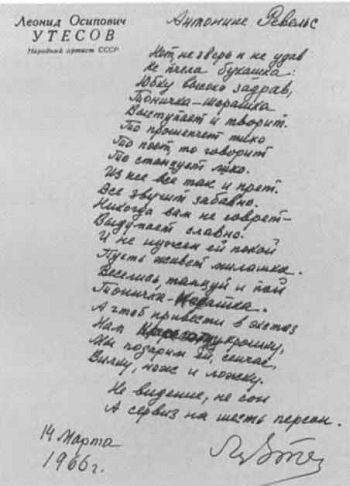 Леонид Осипович
УТЕСОВ
Народный артист СССР
Антонине Ревельс
Нет, не зверь и не удав
Не пчела букашка:
Юбку высоко задрав,
Тоничка-
Выступает и творит.
То прошепчет тихо
То поёт, то говорит
То станцует лихо.
Из нее все так и прет.
Все звучит забавно.
Никогда вам не соврет-
Выдумает славно!
И не нужен ей покой
Пусть живет милашка.
Веселись, танцуй и пой
Тоничка-
А чтоб привести в экстаз
Нам крошку,
Мы подарим ей, сейчас,
Вилку, нож и ложку.
Не видение, не сон
А сервиз на шесть персон.
14 Марта
1966 г.